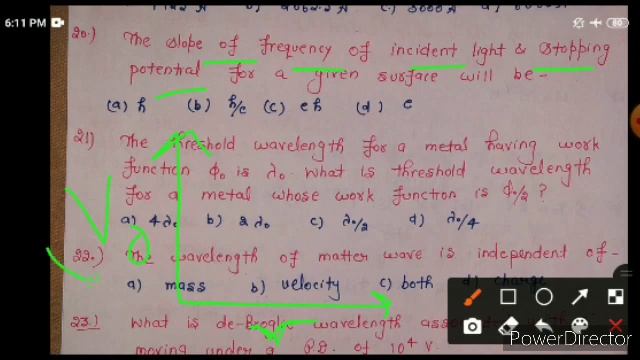 6:11 PM
80
20.) The slope of frequency of incident light & stopping
potential for a given surface will be -
(a) h (b) h/e (c) eh (d) e
21) The threshold wavelength for a metal having work
function ϕ₀ is λ₀. What is threshold wavelength
for a metal whose work function is ϕ₀/2 ?
a) 4λ₀ b) 2λ₀ c) λ₀/2 d) λ₀/4
22.) The wavelength of matter wave is independent of -
a) mass b) velocity c) both d) charge
23.) What is de-Broglie wavelength
moving under a P.D. of 10⁴ V.
PowerDirector